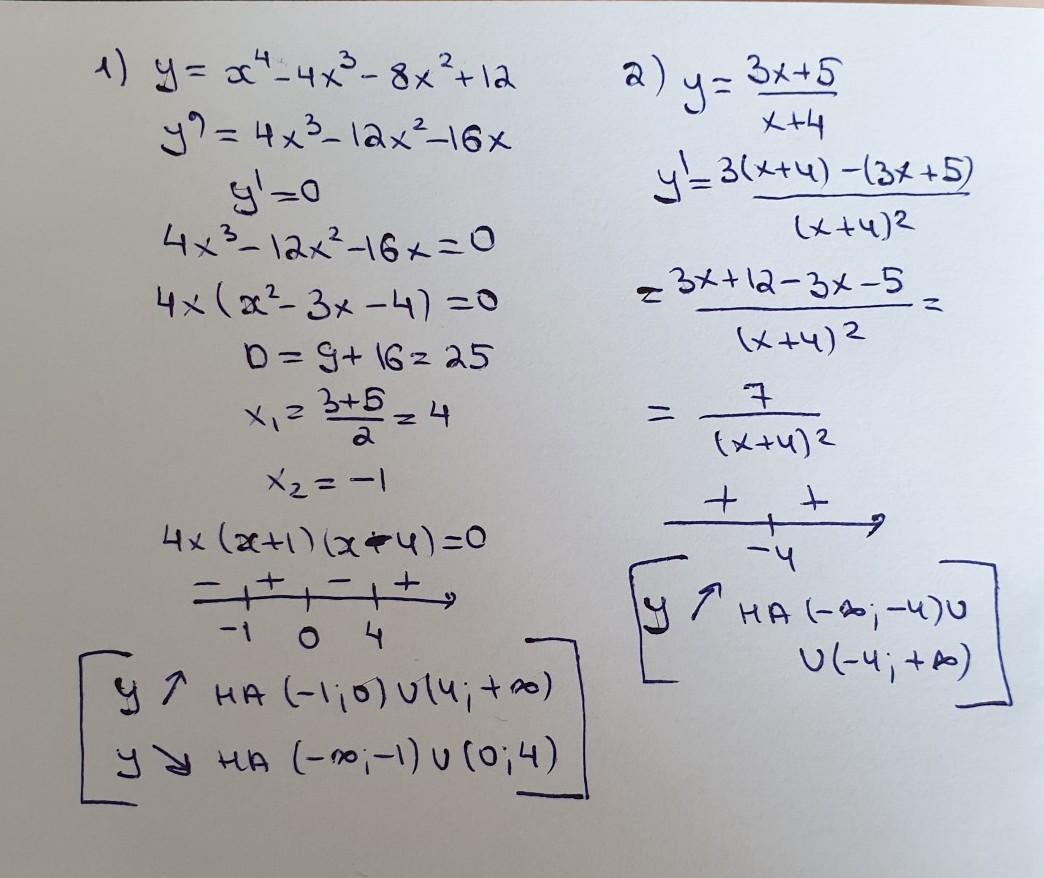 1) y = x⁴ - 4x³ - 8x² + 12
y' = 4x³ - 12x² - 16x
y' = 0
4x³ - 12x² - 16x = 0
4x(x² - 3x - 4) = 0
D = 9 + 16 = 25
x₁ = (3+5)/2 = 4
x₂ = -1
4x(x+1)(x-4) = 0
- + - +
-1 0 4
y ↗ НА (-1;0) U (4; +∞)
y ↘ НА (-∞;-1) U (0;4)
2) y = (3x+5)/(x+4)
y' = (3(x+4) - (3x+5))/(x+4)²
= (3x+12-3x-5)/(x+4)² =
= 7/(x+4)²
+ +
-4
y ↗ НА (-∞; -4) U
U (-4; +∞)